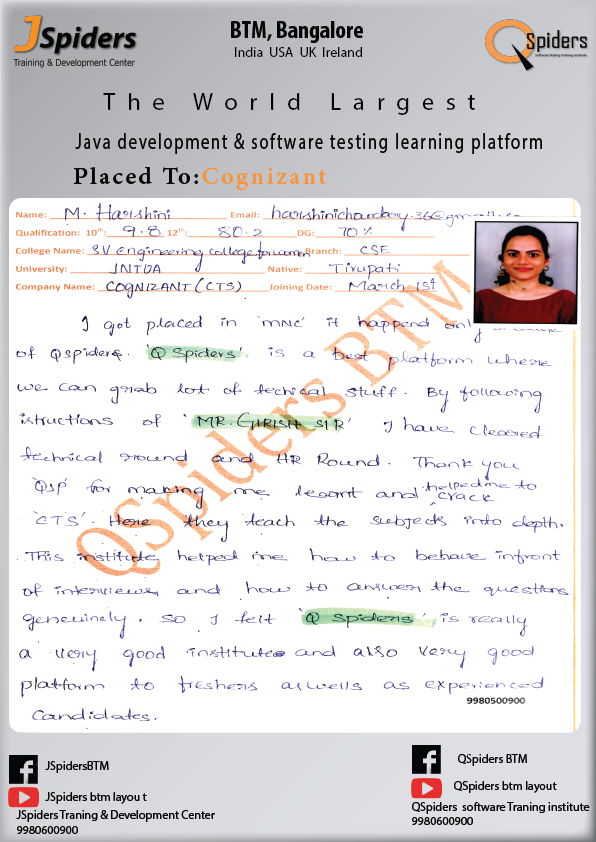 JSpiders
Training & Development Center
BTM, Bangalore
India USA UK Ireland
QSpiders
Software Testing Training Institute
The World Largest
Java development & software testing learning platform
Placed To:Cognizant
Name: M. Harshini Email:
Qualification: 10th: 9.8 12th: 80.2 DG: 70%
College Name: SV engineering college for women Branch: CSE
University: JNTUA Native: Tirupati
Company Name: COGNIZANT (CTS) Joining Date: March 1st
I got placed in 'MNC' it happend only
of Qspiders. 'Q Spiders' is a best platform where
we can grab lot of techical stuff. By following
istructions of 'MR. GIRISH SIR' I have cleared
technical round and HR Round. Thank you
'QSP' for making me learnt and helped me to crack
'CTS'. Here they teach the subjects into depth.
This institute helped me how to behave infront
of interviewer and how to answer the questions
genuinely. so I felt 'Q spiders' is really
a very good institute and also very good
platform to freshers aswells as experienced
candidates.
QSpiders BTM
9980500900
JSpidersBTM
JSpiders btm layou t
JSpiders Traning & Development Center
9980600900
QSpiders BTM
QSpiders btm layout
QSpiders software Traning institute
9980600900